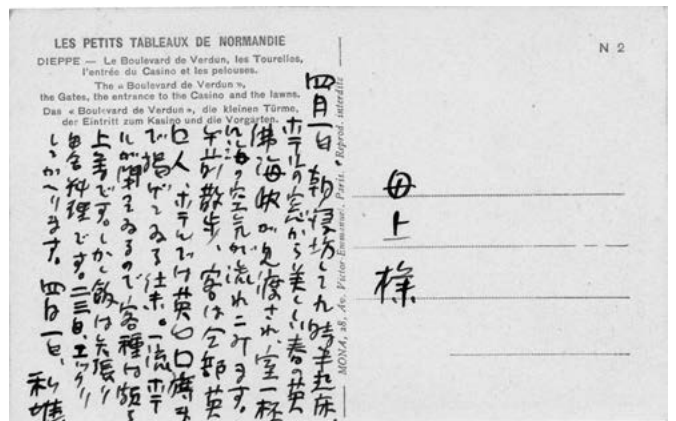 LES PETITS TABLEAUX DE NORMANDIE
DIEPPE — Le Boulevard de Verdun, les Tourelles,
l'entrée du Casino et les pelouses.
The « Boulevard de Verdun »,
the Gates, the entrance to the Casino and the lawns.
Das « Boulevard de Verdun », die kleinen Türme,
der Eintritt zum Kasino und die Vorgarten.
N 2
MONA, 28, Av. Victor-Emmanuel, Paris. Reprod. interdite
母上様
四月一日、朝寝坊して九時半起床、
ホテルの窓から美しい春の英
佛海峡が見渡され、室一杯
に海の空気が流れこみます。
午前散歩、客は全部英
口人、ホテルでは英口口旗ま
で掲げてゐる仕末。一流ホテ
ルが閉まゐるので客種は頗る
上等です。しかし飯は矢張り
田舎料理です。二三日、ユックリ
しつかへります。四月一日、
利雄